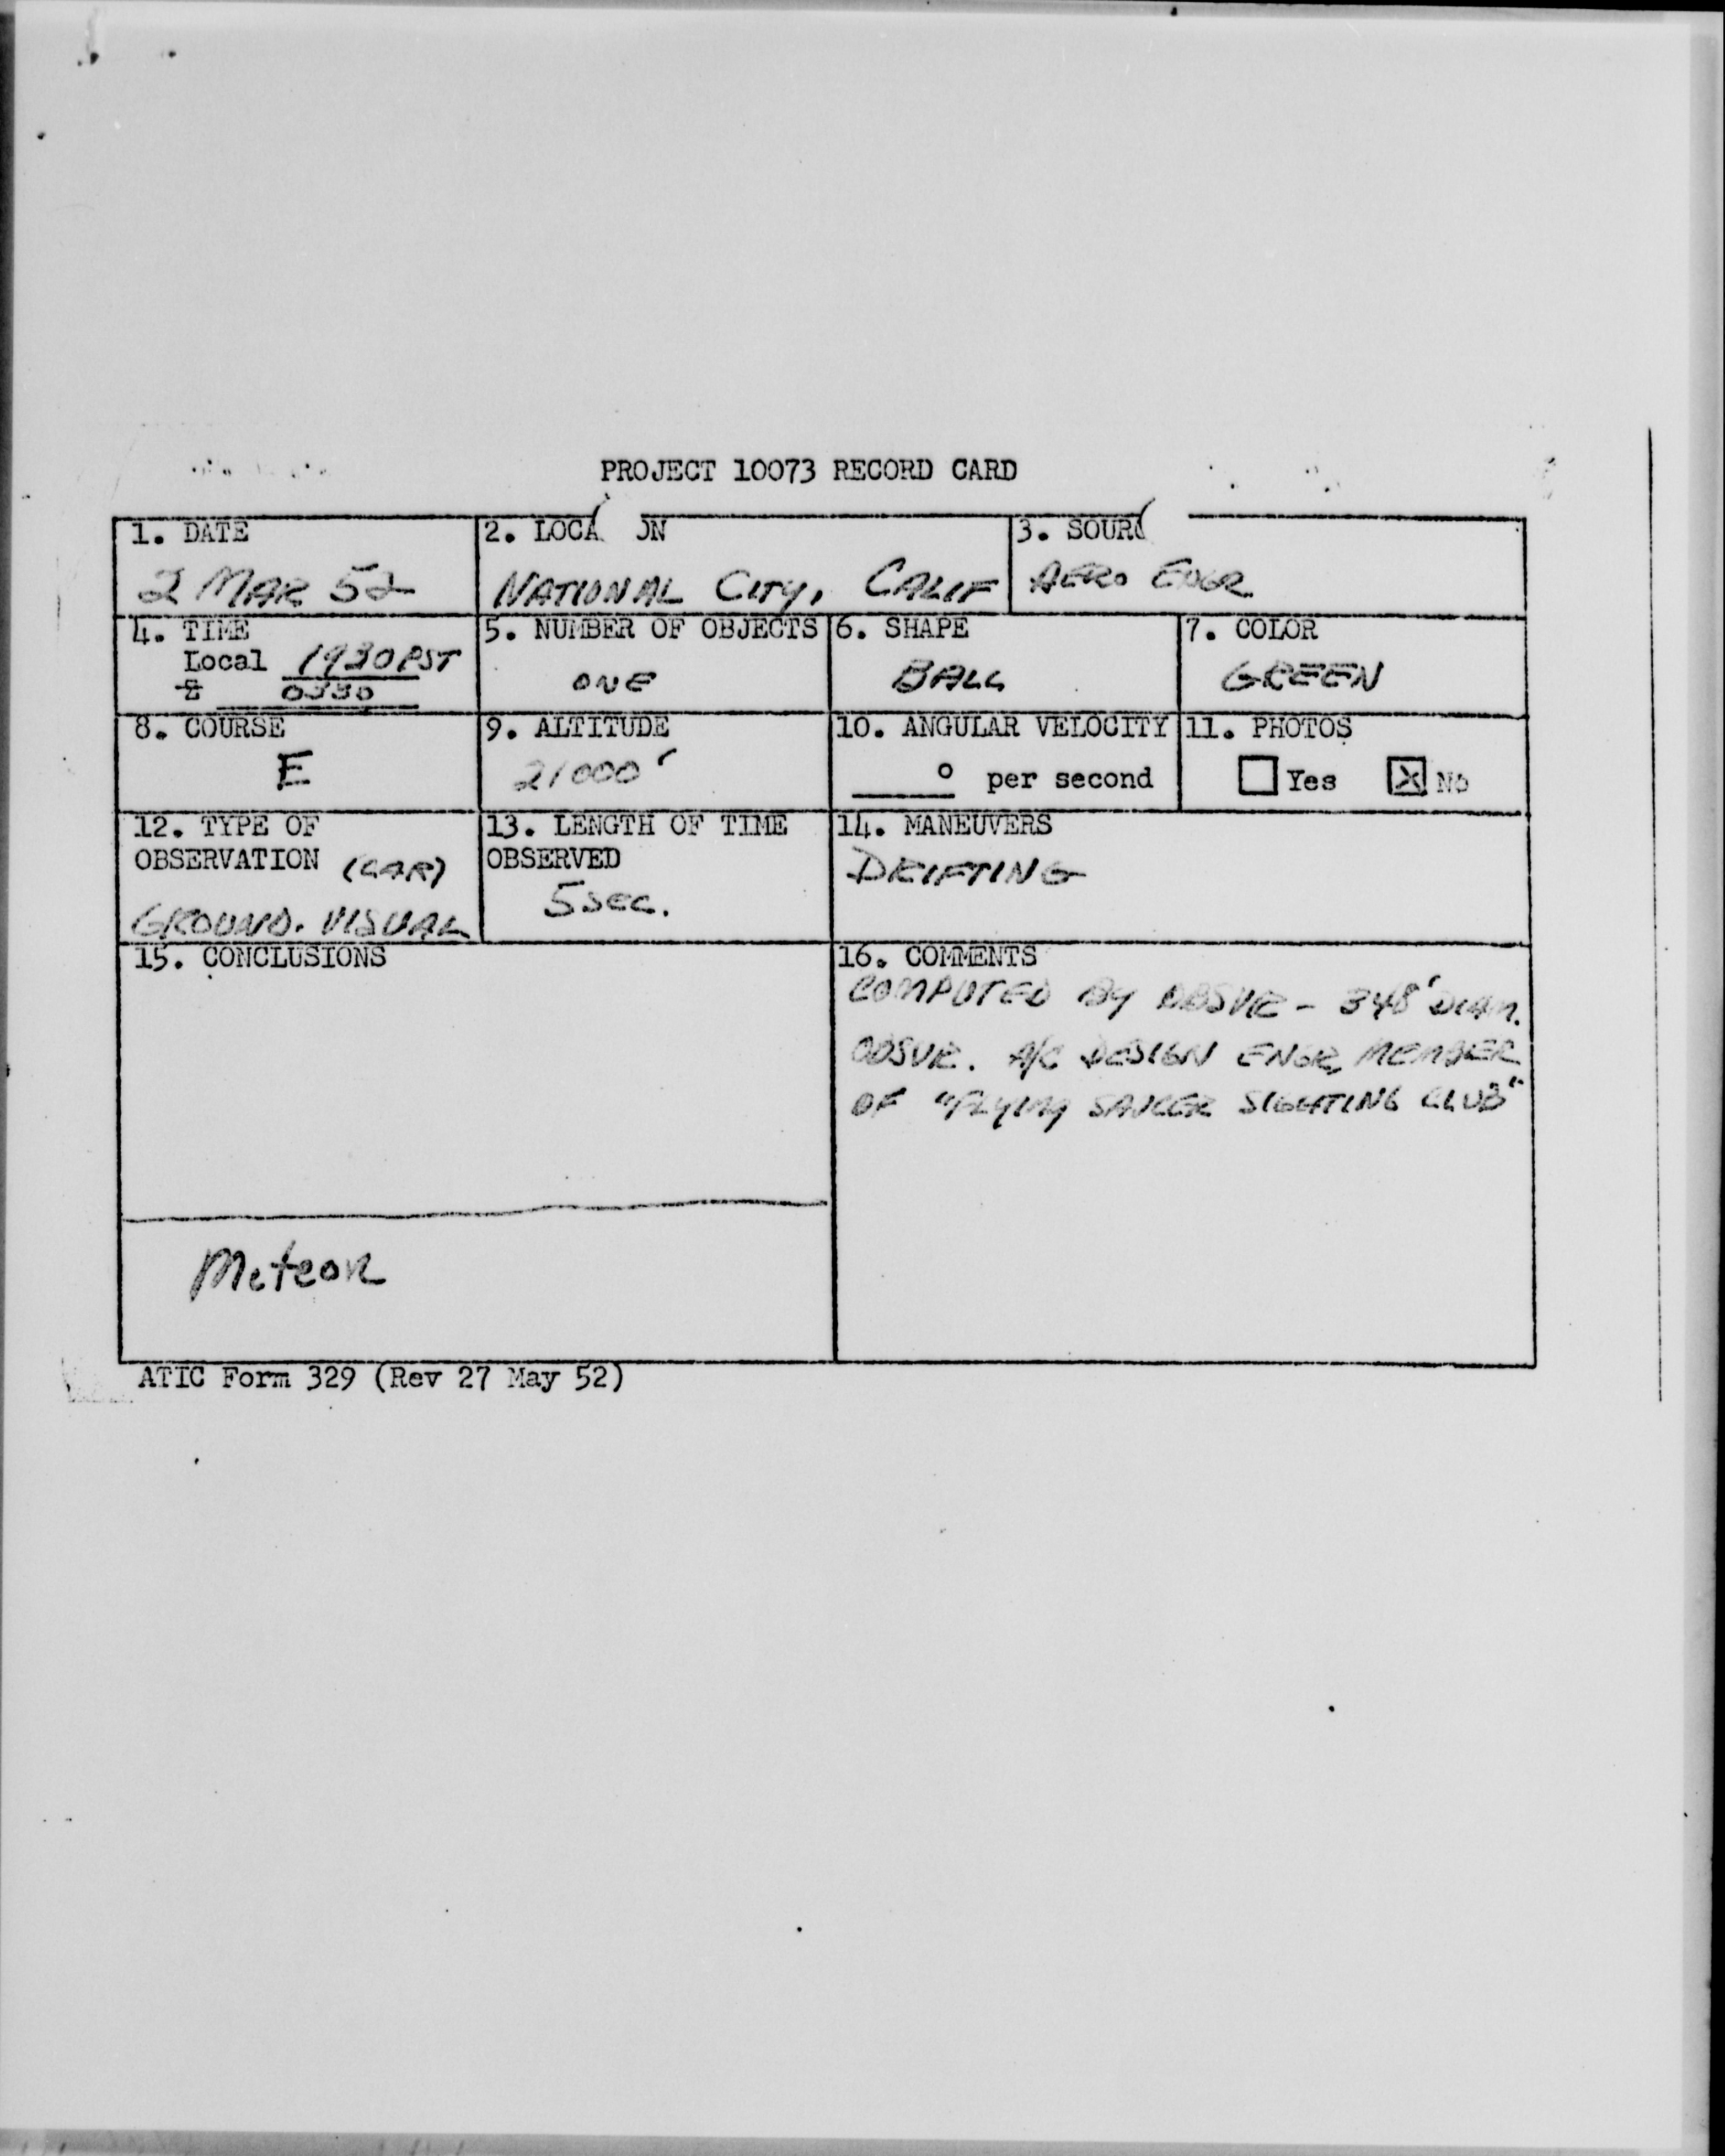 PROJECT 10073 RECORD CARD
1. DATE
2 MAR 52
2. LOCA ON
NATIONAL CITY, CALIF
3. SOURC
AERO ENGR
4. TIME
Local 1930 PST
Z 0330
5. NUMBER OF OBJECTS
ONE
6. SHAPE
BALL
7. COLOR
GREEN
8. COURSE
E
9. ALTITUDE
21000'
10. ANGULAR VELOCITY
° per second
11. PHOTOS
Yes X No
12. TYPE OF
OBSERVATION (CAR)
GROUND. VISUAL
13. LENGTH OF TIME
OBSERVED
5 SEC.
14. MANEUVERS
DRIFTING
15. CONCLUSIONS
Meteor
16. COMMENTS
COMPUTED BY OBSVR - 348' DIAM.
OBSVR. A/C DESIGN ENGR, MEMBER
OF "FLYING SAUCER SIGHTING CLUB"
ATIC Form 329 (Rev 27 May 52)